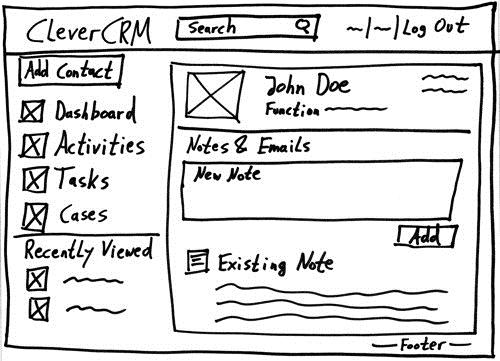 CleverCRM
Search
Log Out
Add Contact
Dashboard
Activities
Tasks
Cases
Recently Viewed
John Doe
Function
Notes & Emails
New Note
Add
Existing Note
Footer